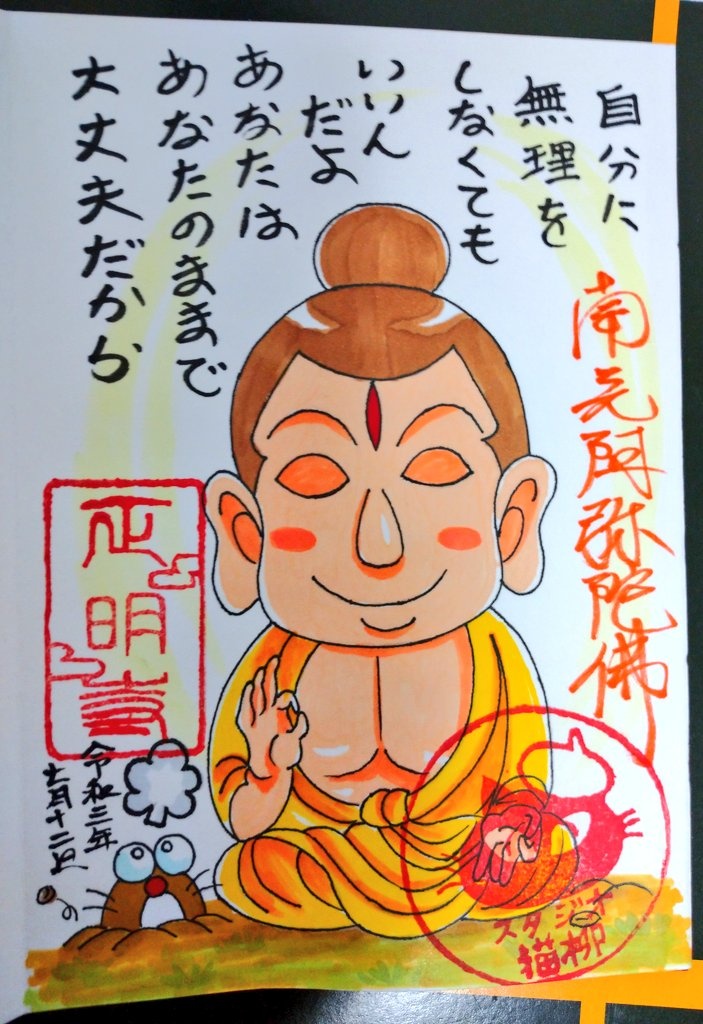 自分に
無理を
しなくても
いいん
だよ
あなたは
あなたのままで
大丈夫だから
南无阿弥陀佛
正明寺
令和三年
七月十二日
スタジオ
猫柳